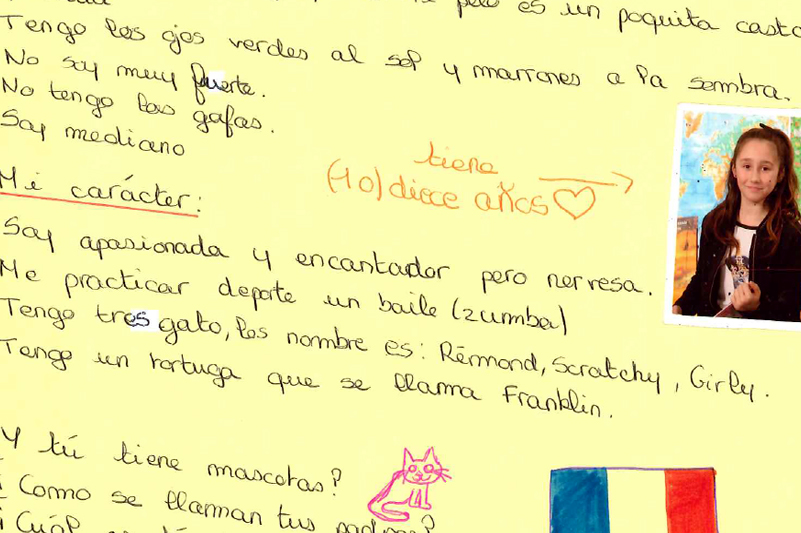 pelo es un poquita casta
Tengo los ojos verdes al sol y marrones a la sombra.
No soy muy fuerte.
No tengo las gafas.
Soy mediano
tiene
(10) diece años
Mi carácter:
Soy apasionada y encantador pero nervesa.
Me practicar deporte un baile (zumba)
Tengo tres gato, les nombre es: Rémond, Scratchy, Girly.
Tengo un tortuga que se llama Franklin.
Y tú tiene mascotas?
¿Como se llaman tus
¿Cuál